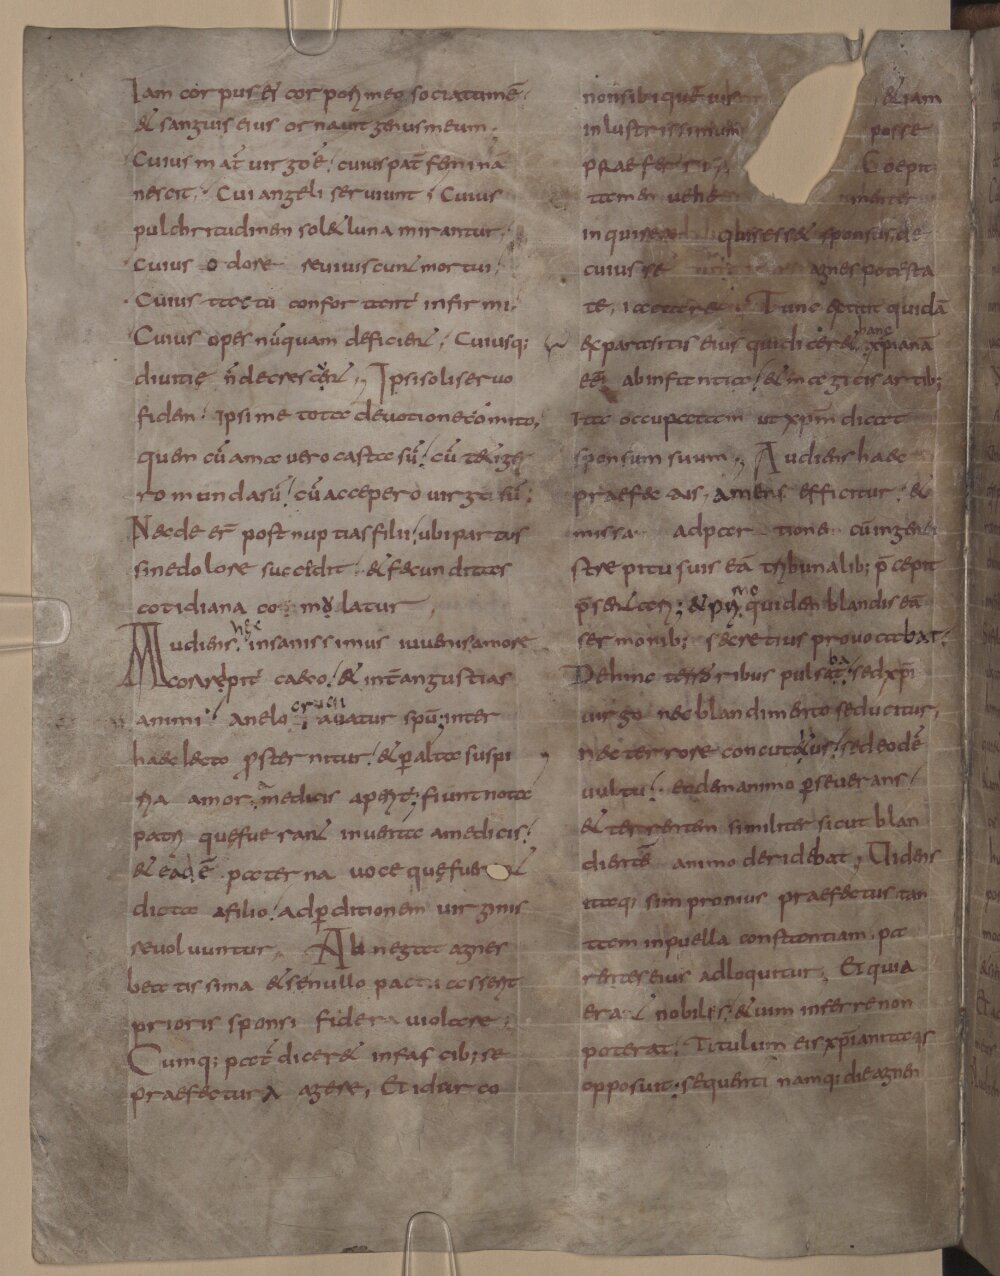 Iam corpus ei corpori meo sociatum ē.
& sanguis eius ornauit genus meum.
Cuius mat̄ uirgo ē. cuius pat̄ feminā
nescit. Cui angeli seruiunt. Cuius
pulchritudinem sol & luna mirantur.
cuius odore reuiuescunt mortui.
Cuius tactu confortant infirmi.
Cuius opes nūquam deficient. Cuiusq;
diuitię n̄ decrescent. Ipsi soli seruo
fidem. Ipsi me tota deuotione cōmitto,
quem cū amauero casta sū. cū tetige
ro munda sū. cū accepero uirgo sū;
Nec deer̄ post nuptias filii. ubi partus
sine dolore succedit. & fecunditas
cotidiana co mulatur.
Audiens hęc insanissimus iuuenis amore
carpit caeco. & int̄ angustias
animi. anelo cruciauatur spū. inter
haec lecto psternitur. & p alta suspi
ria amor medicis aperit; fiunt nota
patri quę fuerant inuenta a medicis.
& eadē paterna uoce quę fuerant
dicta a filio. ad pditionem uirginis
reuoluuntur. Abnegat agnes
beatissima & se nullo pacto posse
prioris sponsi fidera uiolare.
Cumq; pat̄ diceret in fascib; se
praefectura agere, Et idcirco
non sibi quem uis &iam
inlustrissimum posse
praeferri. Coepit
tamen uehementer
inquirere quis esset sponsus. de
cuius se agnes potesta
te iactaret. Tunc extitit quidā
ex parasitis eius qui diceret hanc xpiana
eē ab infantia. & magicis artib;
ita occupatam ut xpm dicat
sponsum suum. Audiens haec
praefectus, amens efficitur. &
missa adparitione cū ingenti
strepitu suis eā tribunalib; p̄cepit
p̄sentari; & primo quidem blandis eā
sermonib; secretius prouocabat.
Dehinc terroribus pulsabat. sed xpi
uirgo nec blandimento seducitur.
nec terrore concutitur. sed eodē
uultu. eodem animo pseuerans.
& terrentem similiter sicut blan
dientē animo deridebat. Uidens
itaq; simpronius praefectus tan
tam in puella constantiam. pa
rentes eius adloquitur. Et quia
erant nobiles. & uim inferre non
poterat. Titulum eis xpianitatis
opposuit. sequenti namq; die agnen